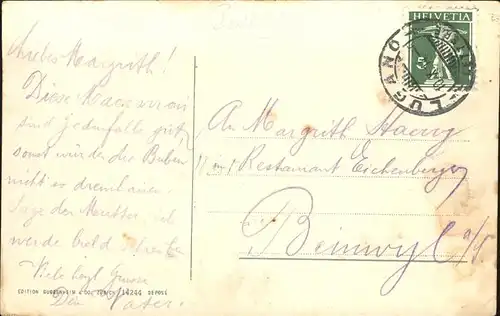 HELVETIA
5
LUGANO
Liebes Margrith!
Diese
sind jedenfalls gut,
sonst würde der Buben
nicht so
Sage der Mutter, ich
werde bald schreiben
Viele herzl. Grüsse
Dein Vater.
An Margrith Haery
Restaurant Eichenberger
Beinwyl a/S.
EDITION GUGGENHEIM & CO. ZÜRICH 14244 DÉPOSÉ